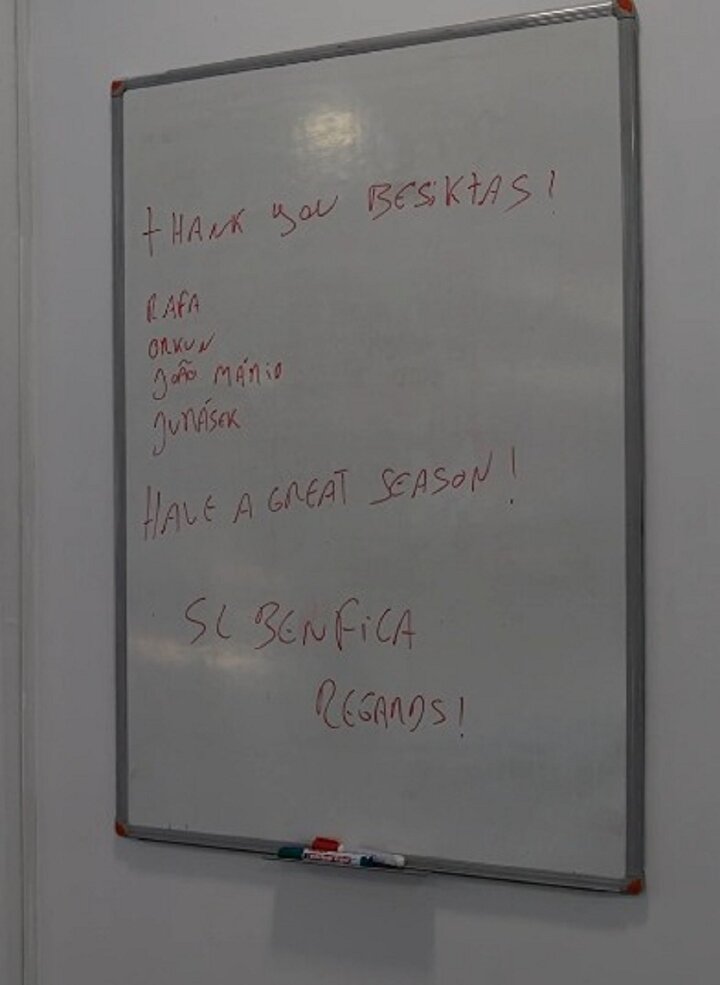 tHANK you BESiKtAS!
RAFA
ORKUN
JOÃO MÁRIO
JURÁSEK
HAVE A GREAT SEASON!
SL BENFiCA
REGARDS!